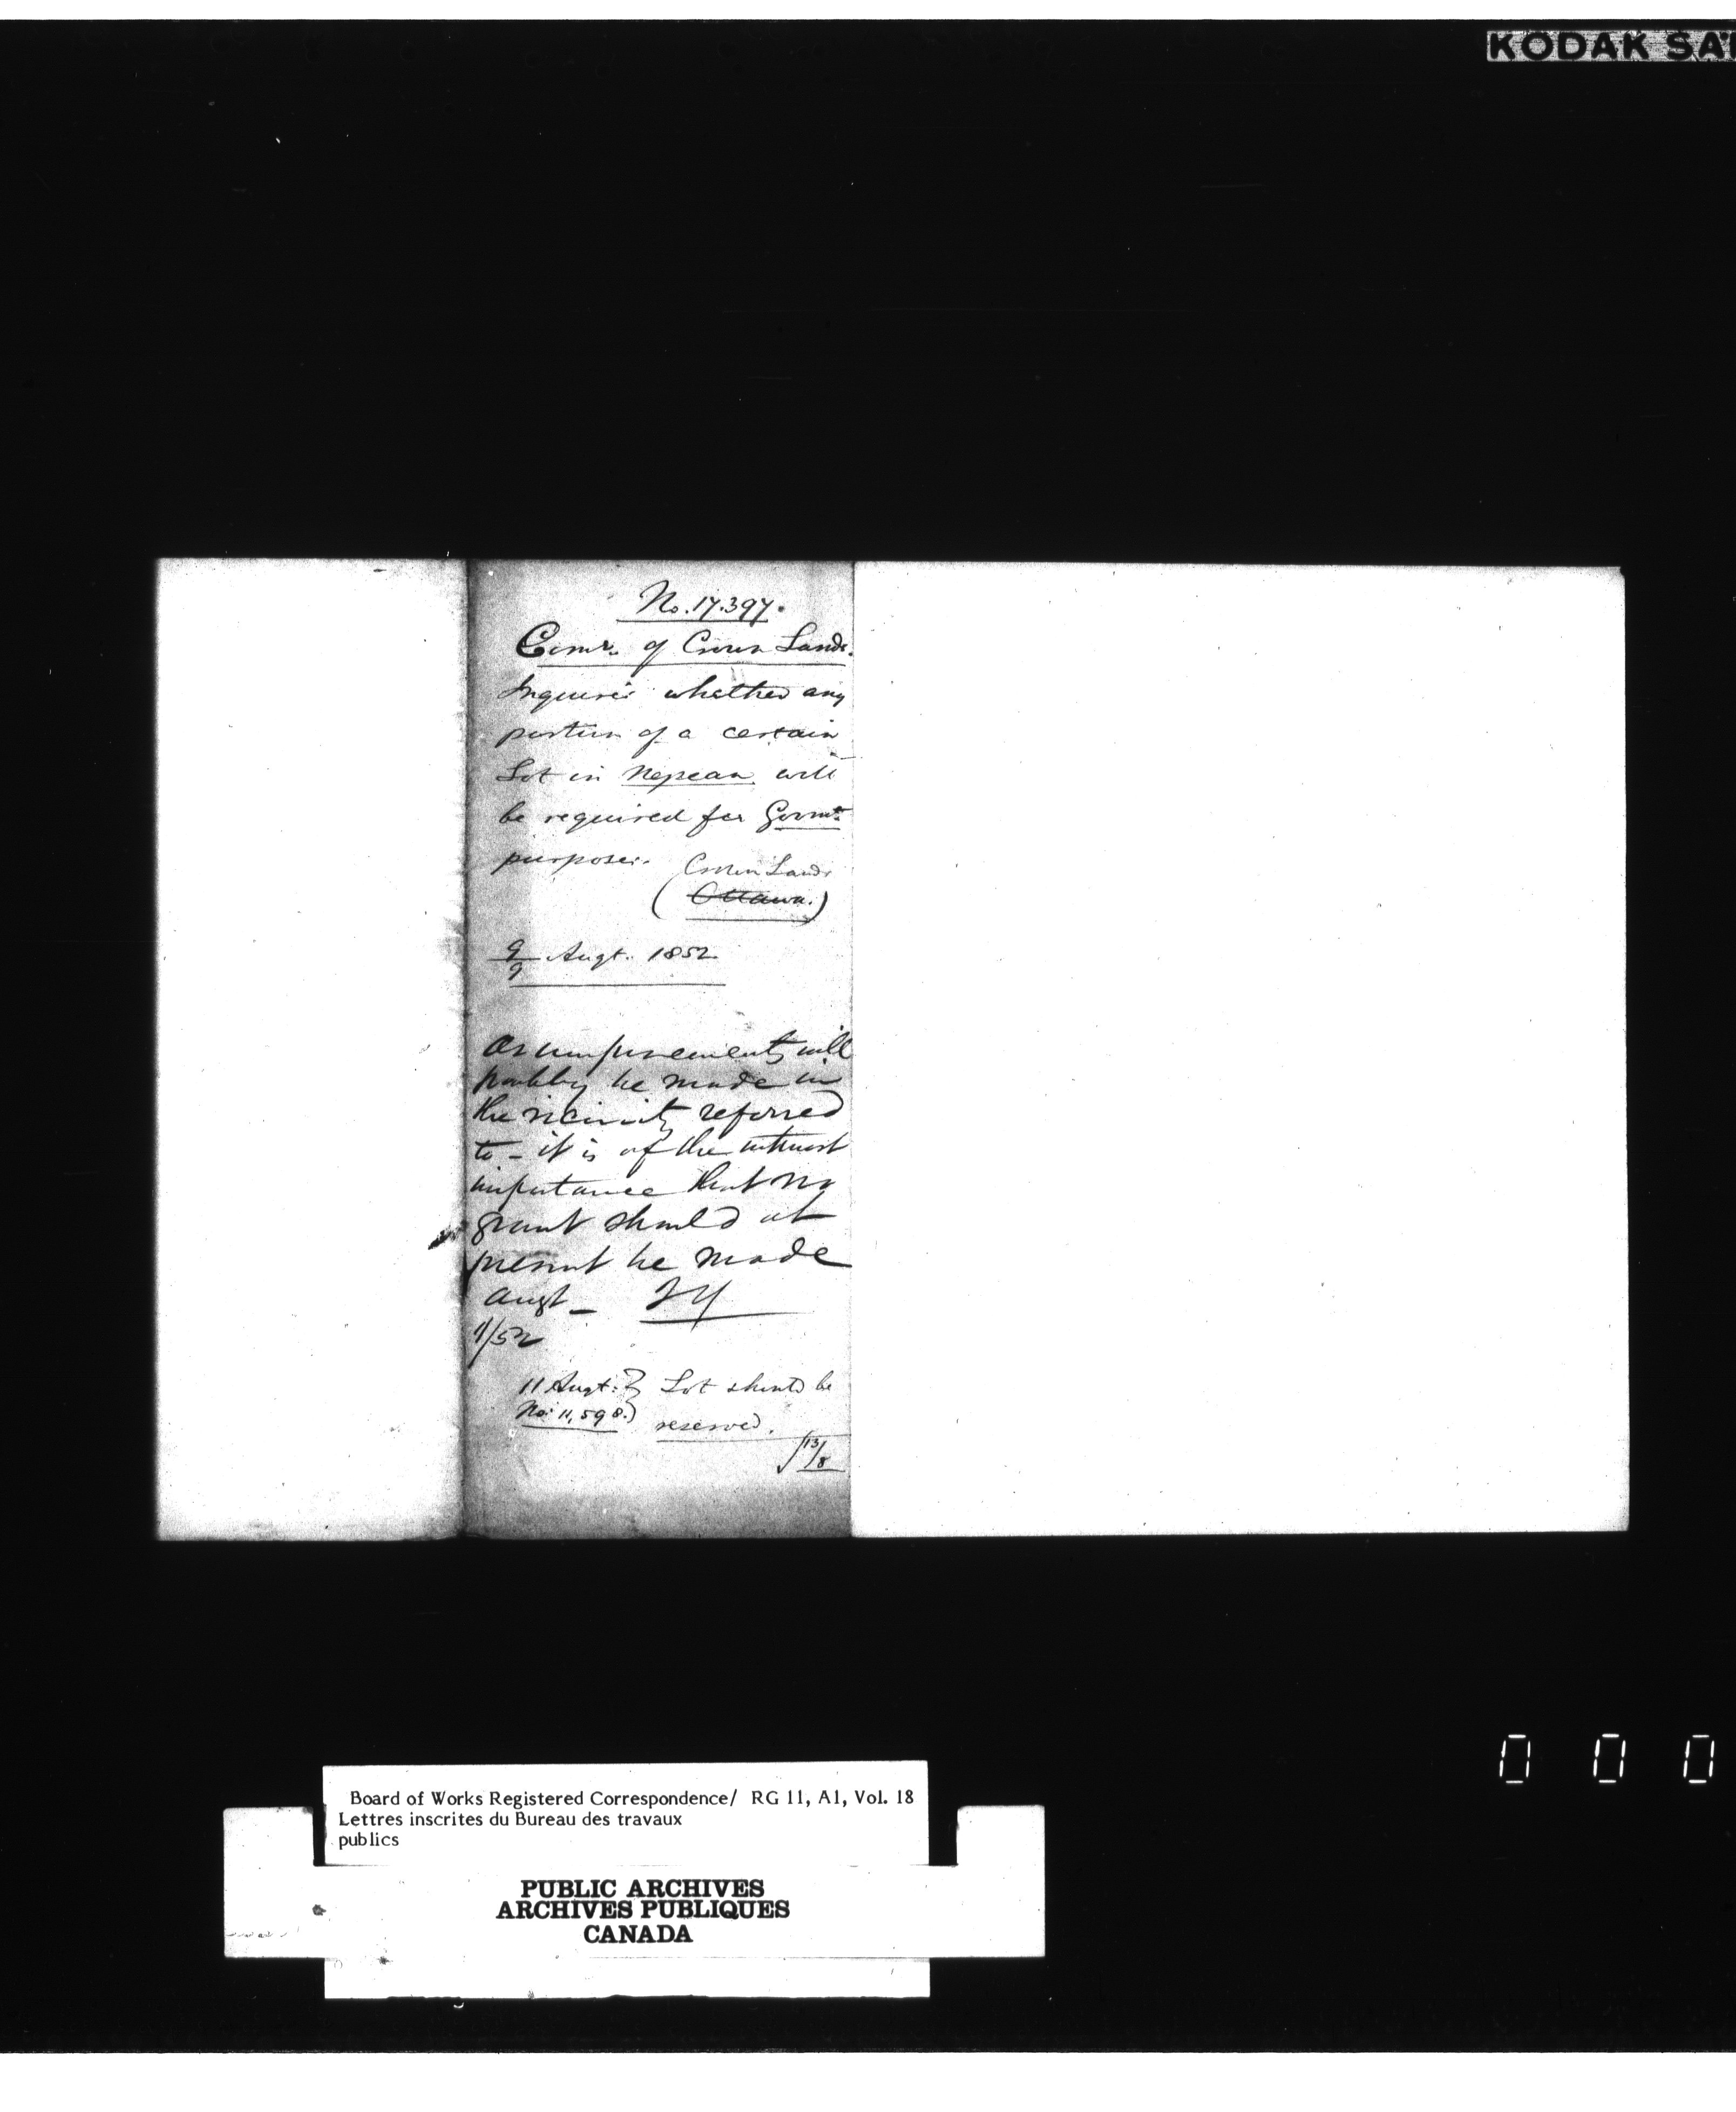 KODAK SA
No. 17.397.
Comr. of Crown Lands.
Inquires whether any
portion of a certain
Lot in Nepean will
be required for Govmt.
purposes.
Crown Lands
(Ottawa.)
9/9 Augt. 1852
As improvements will
probably be made in
the vicinity referred
to - it is of the utmost
importance that no
grant should at
present be made
Augt -
/52
11 Augt. } Lot should be
No. 11,598. } reserved.
13/8
0 0 0
Board of Works Registered Correspondence/ RG 11, A1, Vol. 18
Lettres inscrites du Bureau des travaux
publics
PUBLIC ARCHIVES
ARCHIVES PUBLIQUES
CANADA